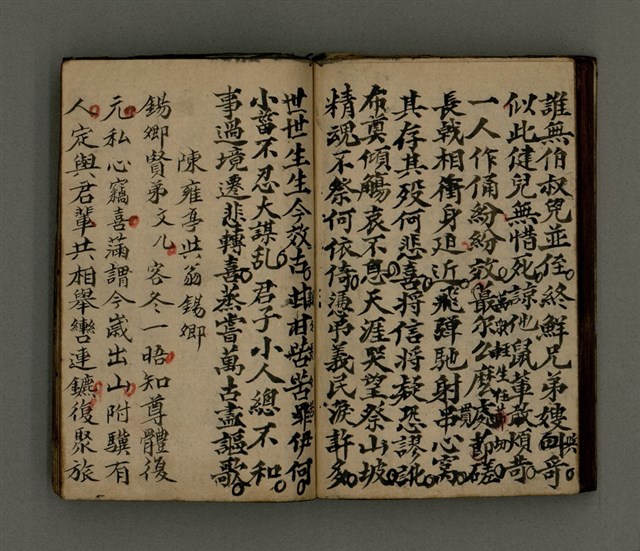 誰無伯叔兒並侄終鮮兄弟嫂而哥
似此健兒無惜死諒他鼠輩敢煩苛
一人作俑紛紛效最尔么麼處節磋
長戟相衝身迫近飛彈馳射串心窩
其存其歿何悲喜將信將疑恐謬訛
布奠傾觴哀不息天涯哭望祭山坡
精魂不祭何依倚憑弔義民淚許多
世世生生今效古甘苦苦罪伊何
小畜不忍大謀亂君子小人總不和
事過境遷悲轉喜蒸嘗萬古盡謳歌
陳雍亭與翁錫卿
錫卿賢弟文几客冬一晤知尊體復
元私心竊喜滿謂今歲出山附驥有
人定與君輩共相舉轡連鑣復聚旅